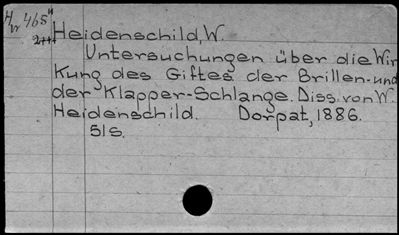 H IV 465"
Heidenschild, W.
Untersuchungen über die Wir
kung des Giftes der Brillen-und
der Klapper-Schlange. Diss. von W.
Heidenschild. Dorpat, 1886.
51S.